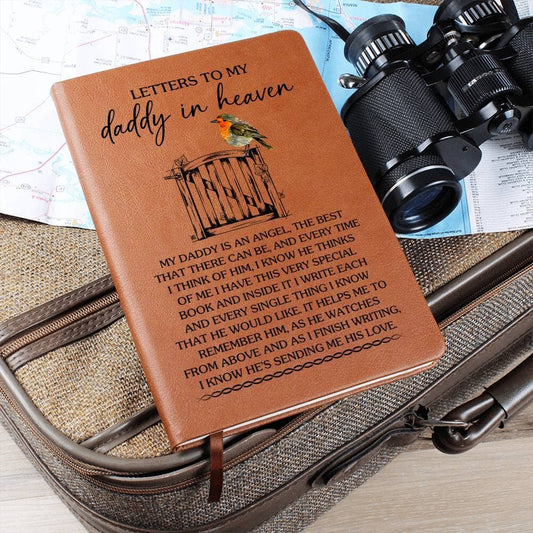 LETTERS TO MY
daddy in heaven
MY DADDY IS AN ANGEL, THE BEST
THAT THERE CAN BE, AND EVERY TIME
I THINK OF HIM, I KNOW HE THINKS
OF ME I HAVE THIS VERY SPECIAL
BOOK AND INSIDE IT I WRITE EACH
AND EVERY SINGLE THING I KNOW
THAT HE WOULD LIKE. IT HELPS ME TO
REMEMBER HIM, AS HE WATCHES
FROM ABOVE AND AS I FINISH WRITING,
I KNOW HE'S SENDING ME HIS LOVE.